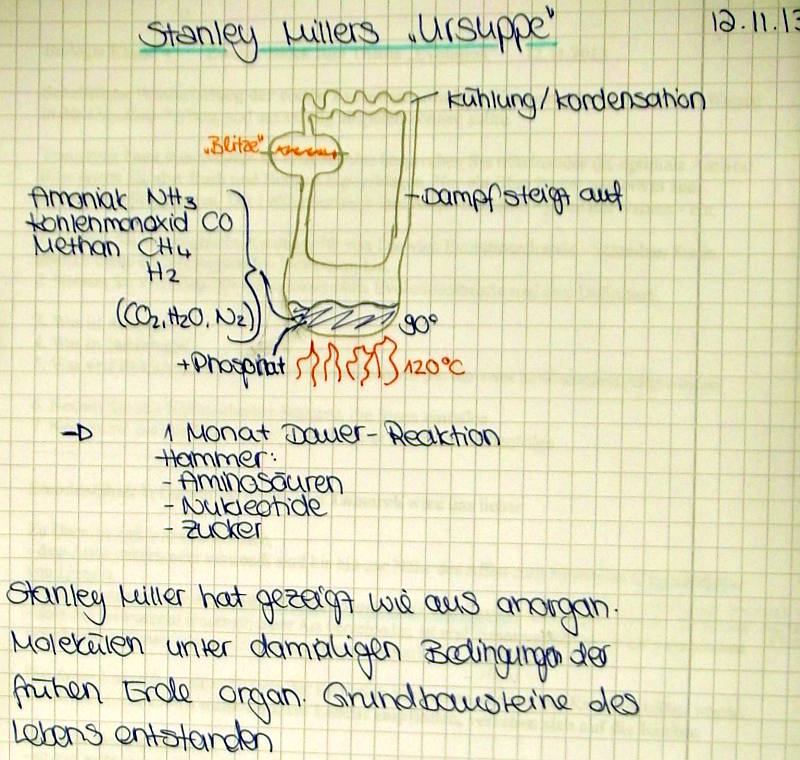 Stanley Millers „Ursuppe" 12.11.13
Kühlung/Kondensation
„Blitze"
Dampf steigt auf
Amoniak NH3
Kohlenmonoxid CO
Methan CH4
H2
(CO2, H2O, N2)
90°
+Phosphat
120°C
1 Monat Dauer-Reaktion
Hammer:
- Aminosäuren
- Nukleotide
- Zucker
Stanley Miller hat gezeigt wie aus anorgan.
Molekülen unter damaligen Bedingungen der
frühen Erde organ. Grundbausteine des
Lebens entstanden